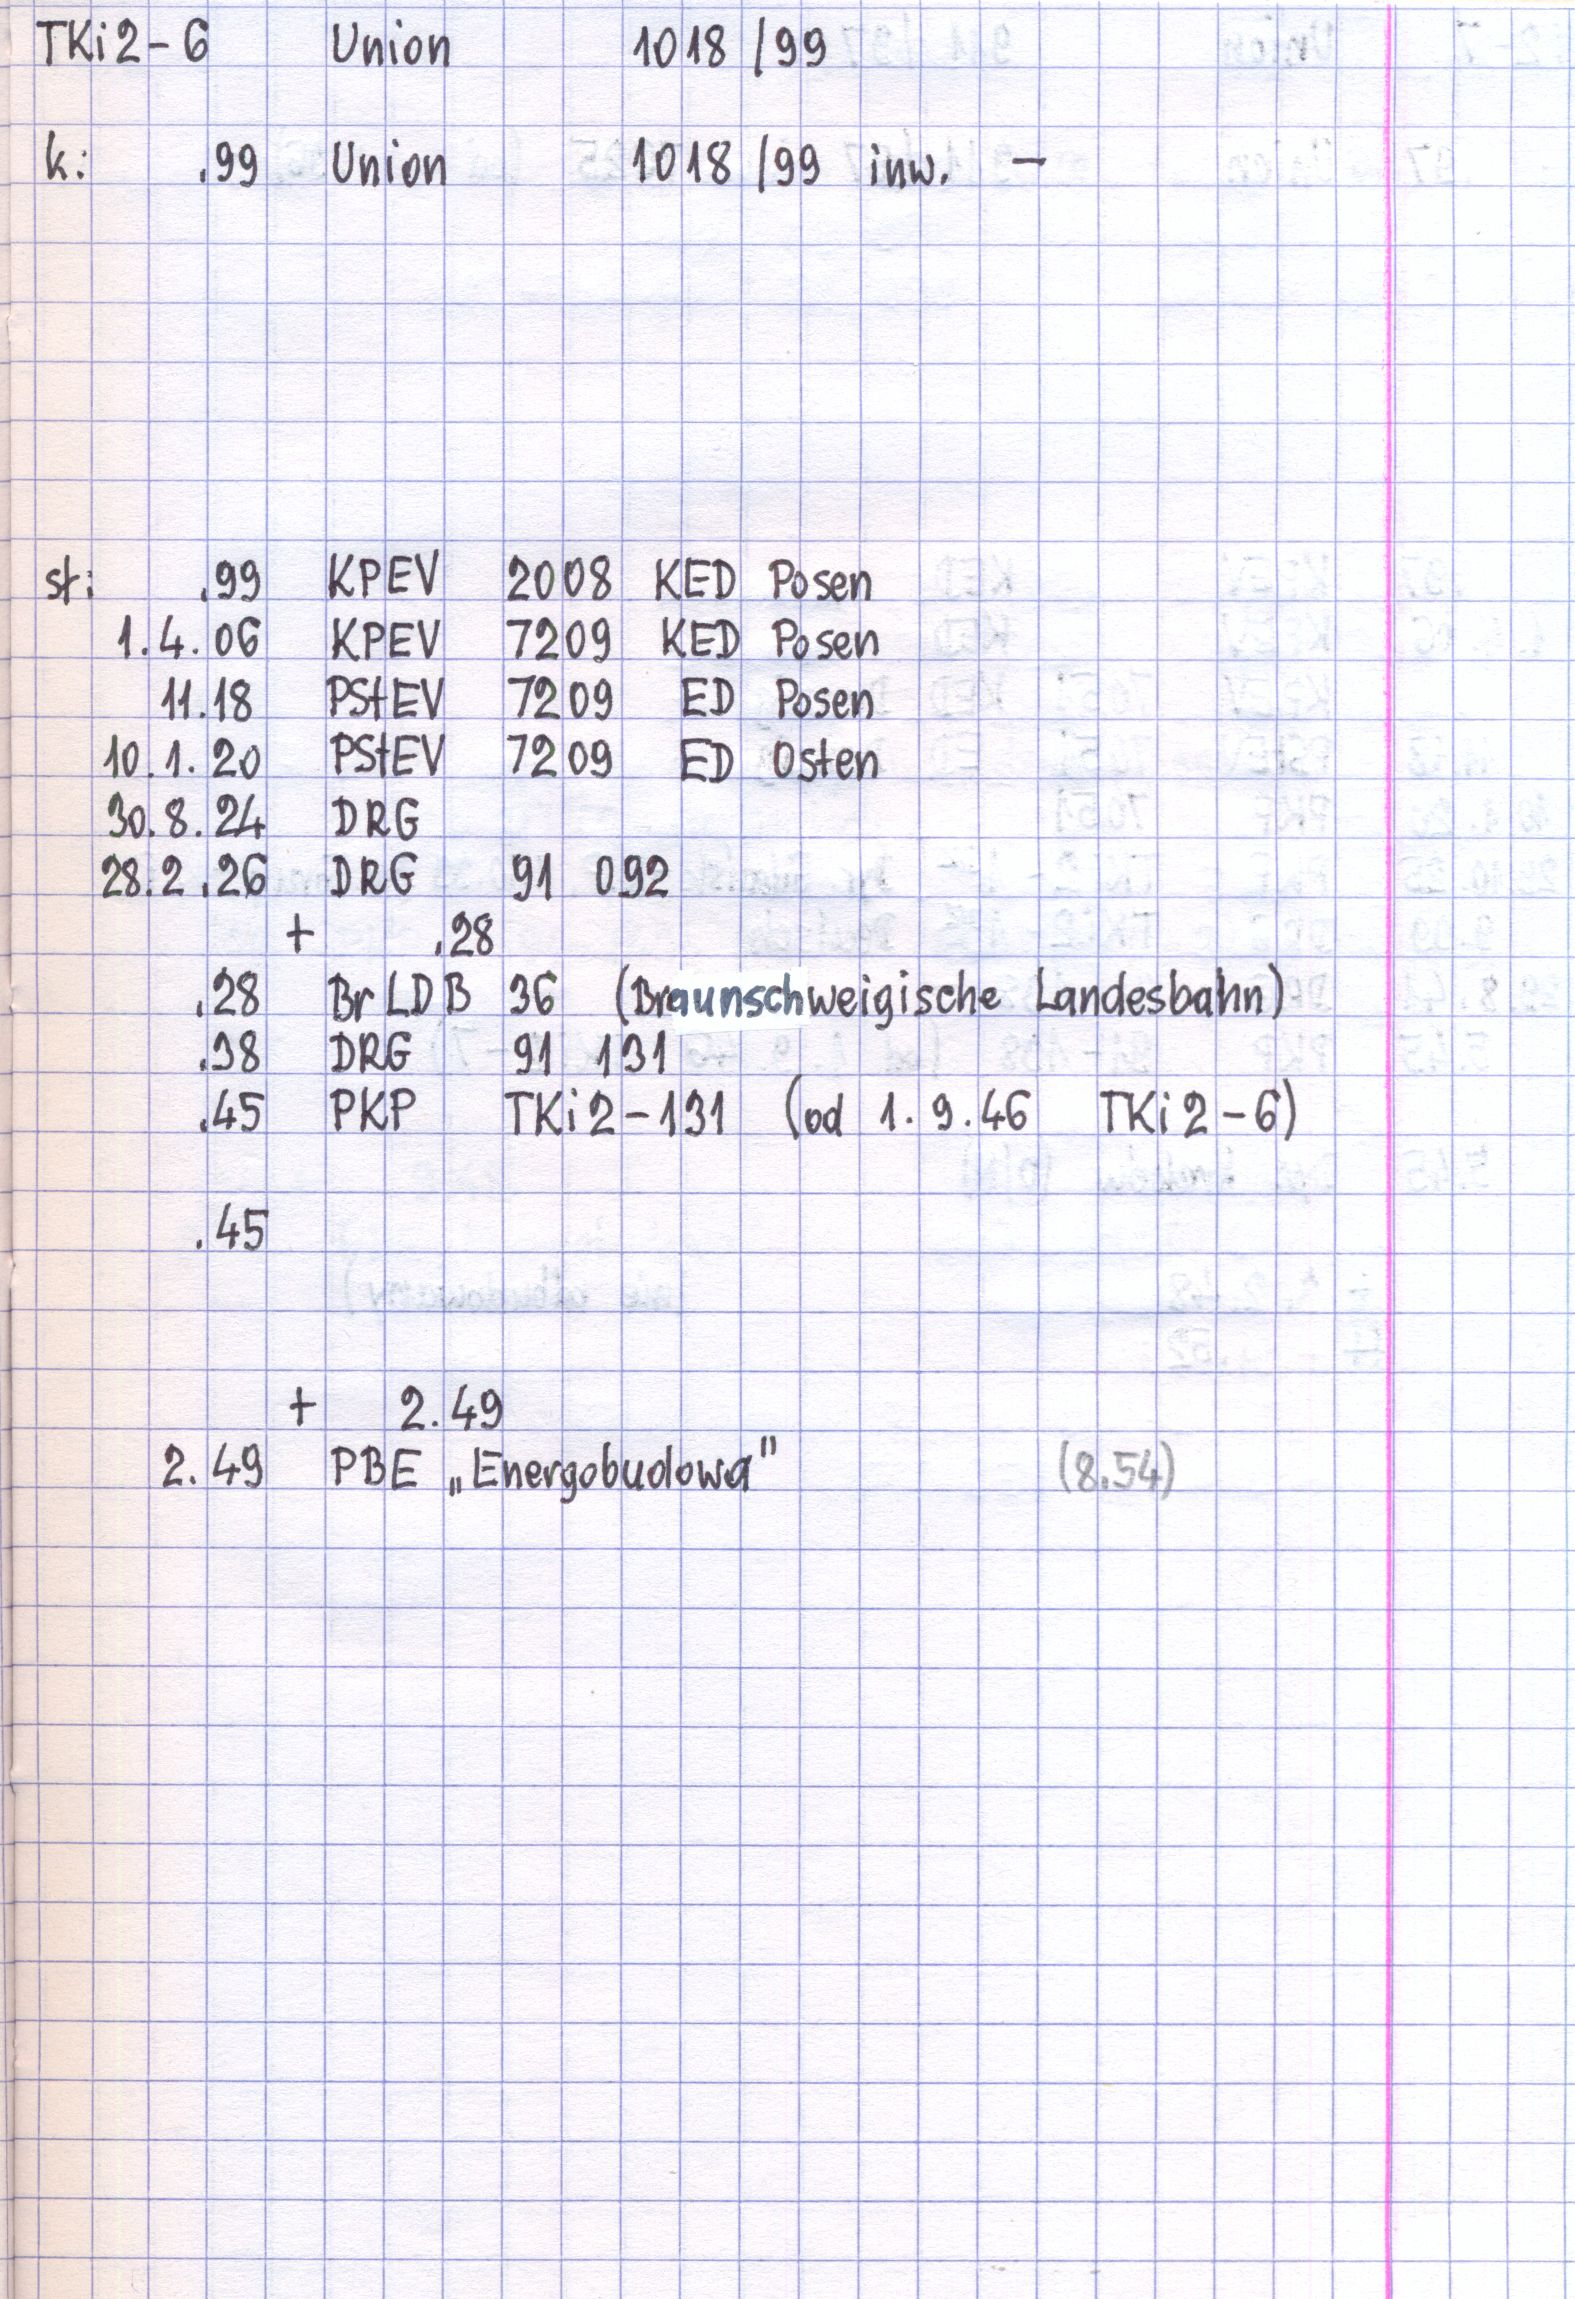 TKi2-6 Union 1018/99
k: .99 Union 1018/99 inw. -
st: .99 KPEV 2008 KED Posen
1.4.06 KPEV 7209 KED Posen
11.18 PStEV 7209 ED Posen
10.1.20 PStEV 7209 ED Osten
30.8.24 DRG
28.2.26 DRG 91 092
+ .28
.28 BrLDB 36 (Braunschweigische Landesbahn)
.38 DRG 91 131
.45 PKP TKi2-131 (od 1.9.46 TKi2-6)
.45
+ 2.49
2.49 PBE „Energobudowa" (8.54)